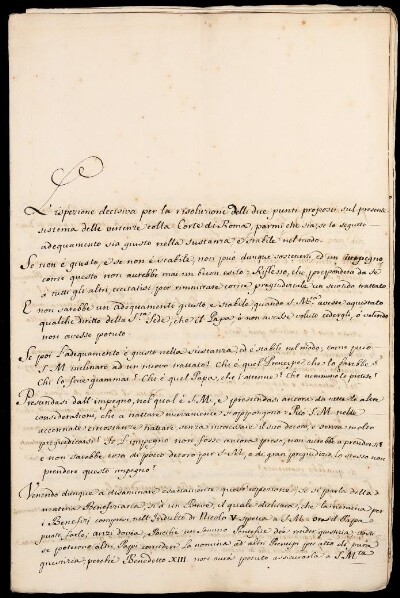 L'ispezione decisiva per la risoluzione delli due punti proposti sul presente
sistema delle vertenze colla Corte di Roma, parmi che sia, se lo seguito
adequamento sia giusto nella sustanza e stabile nel modo.
Se non è giusto, e se non è stabile, non può dunque sostenersi ed un impegno
come questo non avrebbe mai un buon esito: Riflesso, che prepondera da se
a tutti gli altri eccitatisi per rimirare come pregiudiciale un secondo trattato
E non sarebbe un adequamento giusto e stabile quando S. M. avesse acquistato
qualche diritto della S. Sede, che il Papa o non avesse voluto cedergli, o volendo
non avesse potuto.
Se poi l'adequamento è giusto nella sustanza, ed è stabile nel modo, come può
S. M. inclinare ad un nuovo trattato? Chi è quel Principe che lo farebbe?
Chi lo
Chi è quel Papa, che
Che nemmeno lo
Prescindasi dall'impegno, nel qual è S. M., e prescindasi ancora da tutte le altre
considerazioni, che a trattare nuovamente si oppongono: Può S. M. nelle
trattare, senza
il suo decoro, e senza molto
pregiudicarsi? Se l'impegno non fosse ancora preso, non avrebbe a prendersi
e non sarebbe, cosa di poco decoro per S. M., e di gran pregiudizio lo stesso non
prendere questo impegno?
Venendo dunque a disaminare esattamente quest'ispezione, se si parla della
materia Beneficiaria, vi è un Breve, il quale dichiara, che la nomina per
i Benefizi compresi nell'Indulto di Nicolò V spetta a S. M. Or se il Papa
puote farlo, anzi dovea, perchè un sommo Pontefice dee render giustizia:
se poterono altri Papi conceder la nomina ad altri Principi per atto di pura
grazia, perchè Benedetto XIII non avrà potuto assicurarla a S. M.